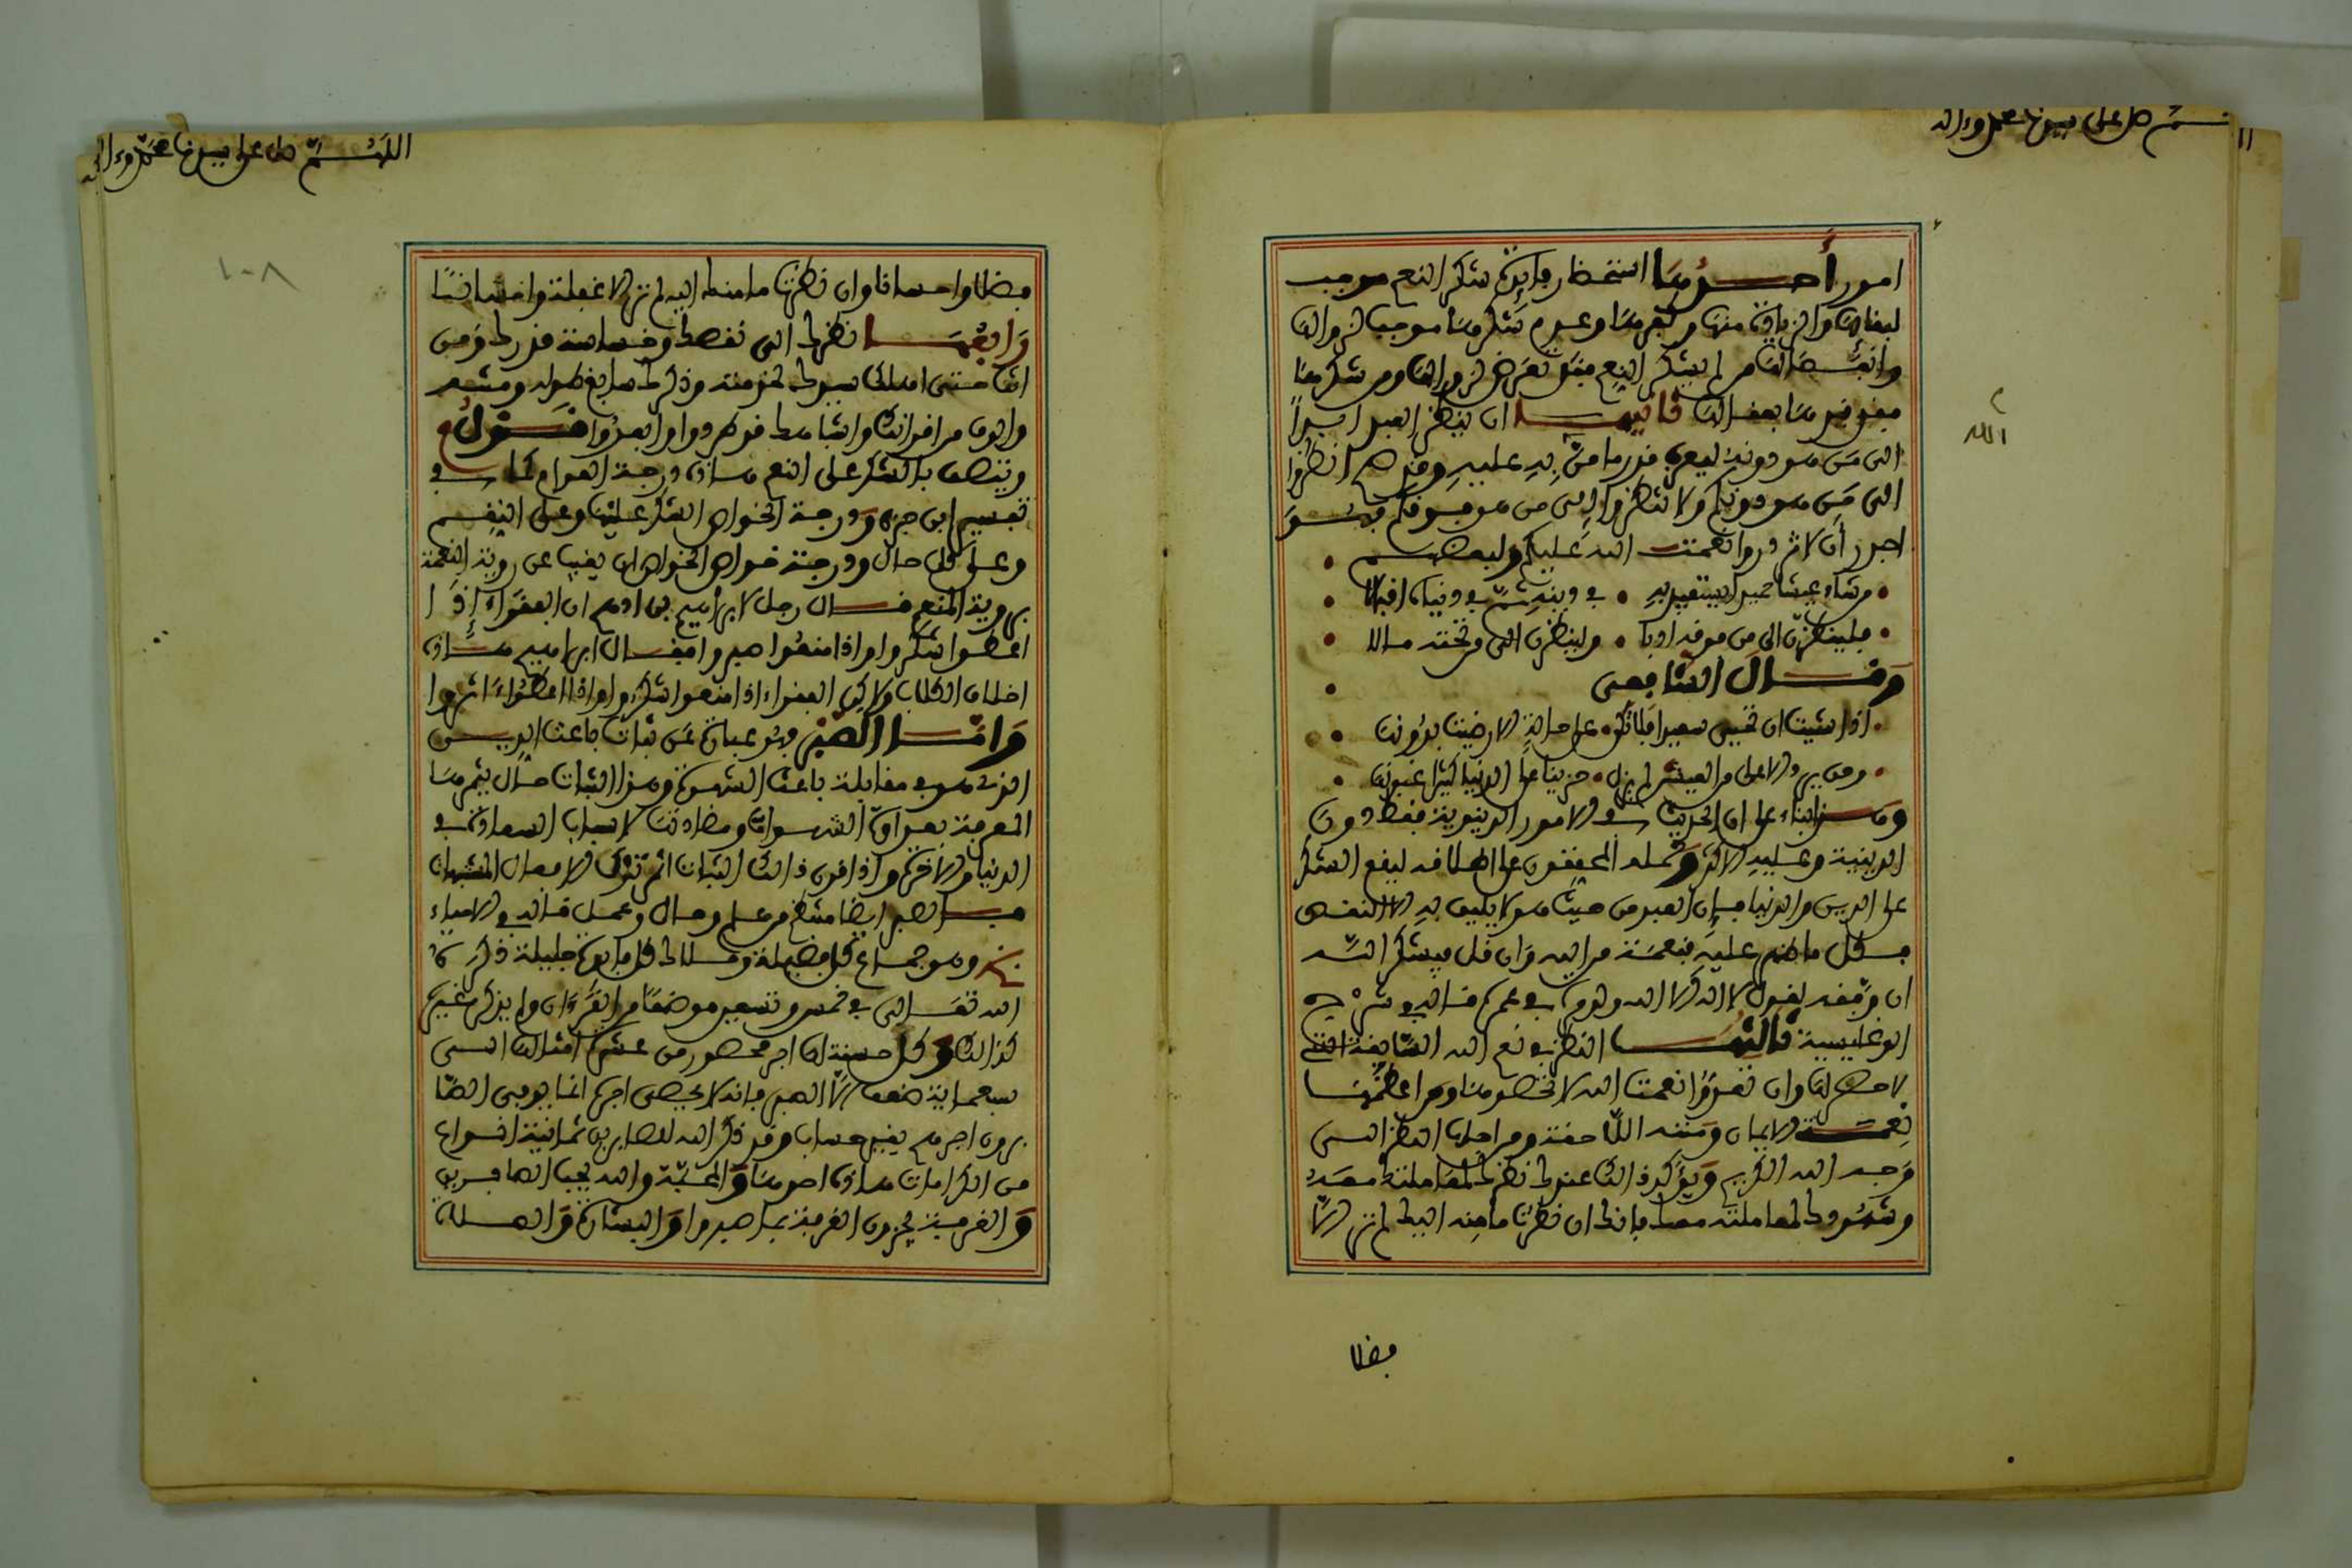 اللهم صل على سيدنا محمد وءاله
امور أحدها استحضار فايدة شكر النعم موجب
لبقائها والزيادة منها وكفرها وعدم شكرها موجب لزوالها
وانفصالها من لم يشكر النعم فقد تعرض لزوالها ومن شكرها
فقد قيدها بعقالها ثانيها ان ينظر العبد ابدا
الى من هو دونه ليعرف قدر ما من به عليه وقد صح انظروا
الى من هو دونكم ولا تنظروا الى من هو فوقكم فهو
اجدر أن لا تزدروا نعمت الله عليكم ولبعضهم
من شاء عيشا حميدا يستفيد به في دينه ثم في دنياه اقبالا
فلينظرن الى من فوقه ادبا ولينظرن الى من تحته مالا
وقال الشافعي
اذا شيت ان تحيى سعيدا فلا تكن على حالة الا رضيت بدونها
ومن يرد الاعلى من العيش لم يزل حزينا على الدنيا كثير غبونها
وهذا بناء على ان الحديث في الامور الدنيوية فقط دون
الدينية وعليه الاكثر وحمله المحققون على اطلاقه ليقع الشكر
على الدين والدنيا فان العبد من حيث هو لا يليق به الا النقص
فكل ما ظهر عليه فنعمة من الله وان قل فيشكر الله
ان وفقه لقول لا اله الا الله ولو مرة في عمره قاله في شرح
الوغليسية ثالثها النظر في نعم الله السابقة التي
لا حصر لها وان تعدوا نعمت الله لا تحصوها ومن اعظمها
نعمة الايمان ومنته اللاحقة ومن اجلها النظر الى
وجه الله الكريم ويؤكد ذالك عندك نظرك لمعاملتك معه
وشهودك لمعاملته معك فانك ان نظرت ما منه اليك لم تر الا
فضلا
الله
اللهم صل على سيدنا محمد وءاله
١٠٨
فضلا واحسانا وان نظرت ما منك اليه لم تر الا غفلة وامتنانا
رابعها نظرك الى نقصك وخساسة قدرك ومن
انت حتى اهلك سيدك لخدمته وذكرك سابغ طوله ومتى
والوف من اقرانك واشباهك فوكم ودوا وابعدوا قول
ويتصف بالشكر على النعم هاذه درجة العوام كما في
تفسير ابن جزي ودرجة الخواص الشكر عليها وعلى النقم
وعلى كل حال ودرجة خواص الخواص ان يغيب عن روية النعمة
بروية المنعم قال رجل لابراهيم بن ادهم ان الفقراء اذا
اعطوا شكروا واذا منعوا صبروا فقال ابراهيم هاذه
اخلاق الكلاب ولاكن الفقراء اذا منعوا شكروا واذا اعطوا ءاثروا
واما الصبر فهو عبارة عن ثبات باعث الدين
الذي هو في مقابلة باعث الشهوة وهذا الثبات حال يثمرها
المعرفة بعداوة الشهوات ومضادتها لاسباب السعادة في
الدنيا والاخرة واذا قوي ذالك الثبات اثمر ترك الافعال المشتهات
فالصبر ايضا منتظم من علم وحال وعمل قاله في الاحياء
وهو جماع كل فضيلة وملاك كل فايدة جليلة ذكره
الله تعالى في خمسة وتسعين موضعا من القرءان ولم يذكر غيره
كذالك وكل حسنة لها اجر محصور من عشر امثالها الى
سبعماية ضعف الا الصبر فانه لا يحصى اجره انما يوفى الصا
برون اجرهم بغير حساب وقد ذكر الله للصابرين ثمانية انواع
من الكرامات هاذه احدها والمحبة والله يحب الصابرين
والغرفة يجزون الغرفة بما صبروا والبشارة والصلاة